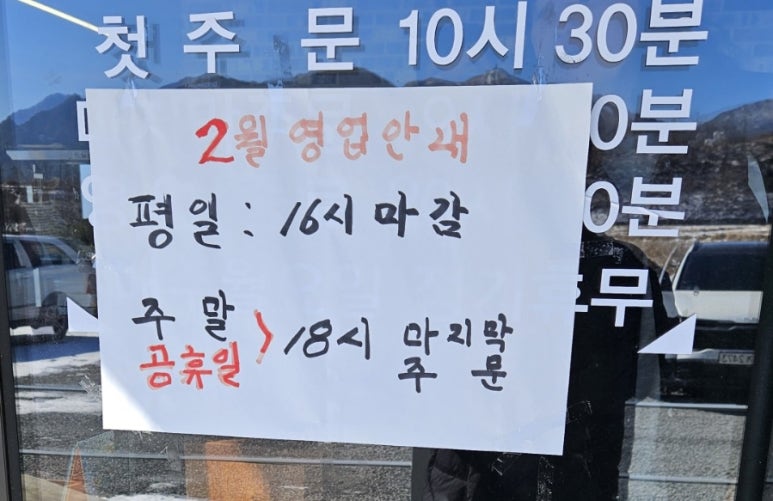 첫 주 문 10시 30분
2월 영업안내
0분
평일: 16시 마감
0분
무
주 말
공휴일 > 18시 마지막
주 문